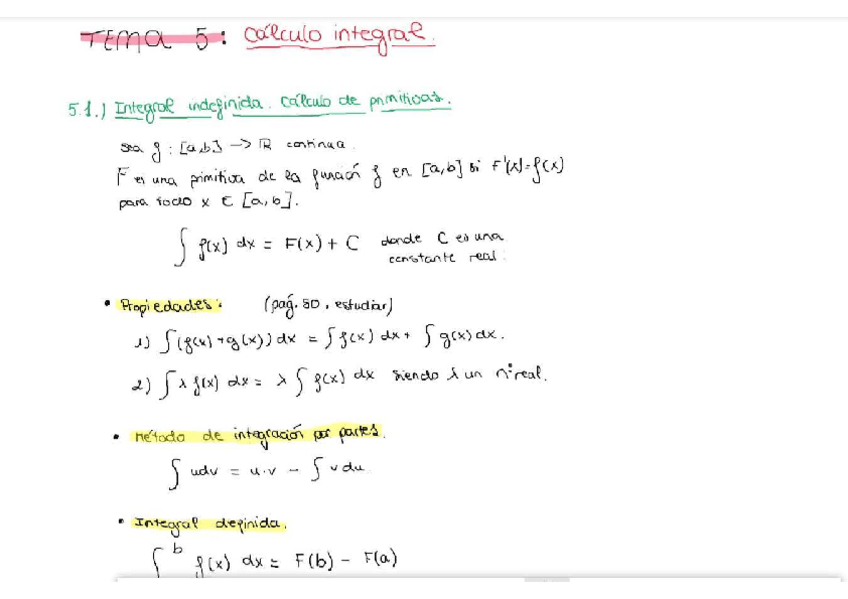 TEMA 5: Cálculo integral.
5.1.) Integral indefinida. Cálculo de primitivas.
sea f: [a,b] → ℝ continua.
F es una primitiva de la función f en [a,b] si F'(x)=f(x)
para todo x ∈ [a,b].
∫ f(x) dx = F(x) + C donde C es una
constante real.
• Propiedades: (pag. 50, estudiar)
1) ∫(f(x)+g(x)) dx = ∫ f(x) dx + ∫ g(x) dx.
2) ∫ λ f(x) dx = λ ∫ f(x) dx siendo λ un nº real.
• Método de integración por partes.
∫ u dv = u·v - ∫ v du.
• Integral definida.
∫ b f(x) dx = F(b) - F(a)